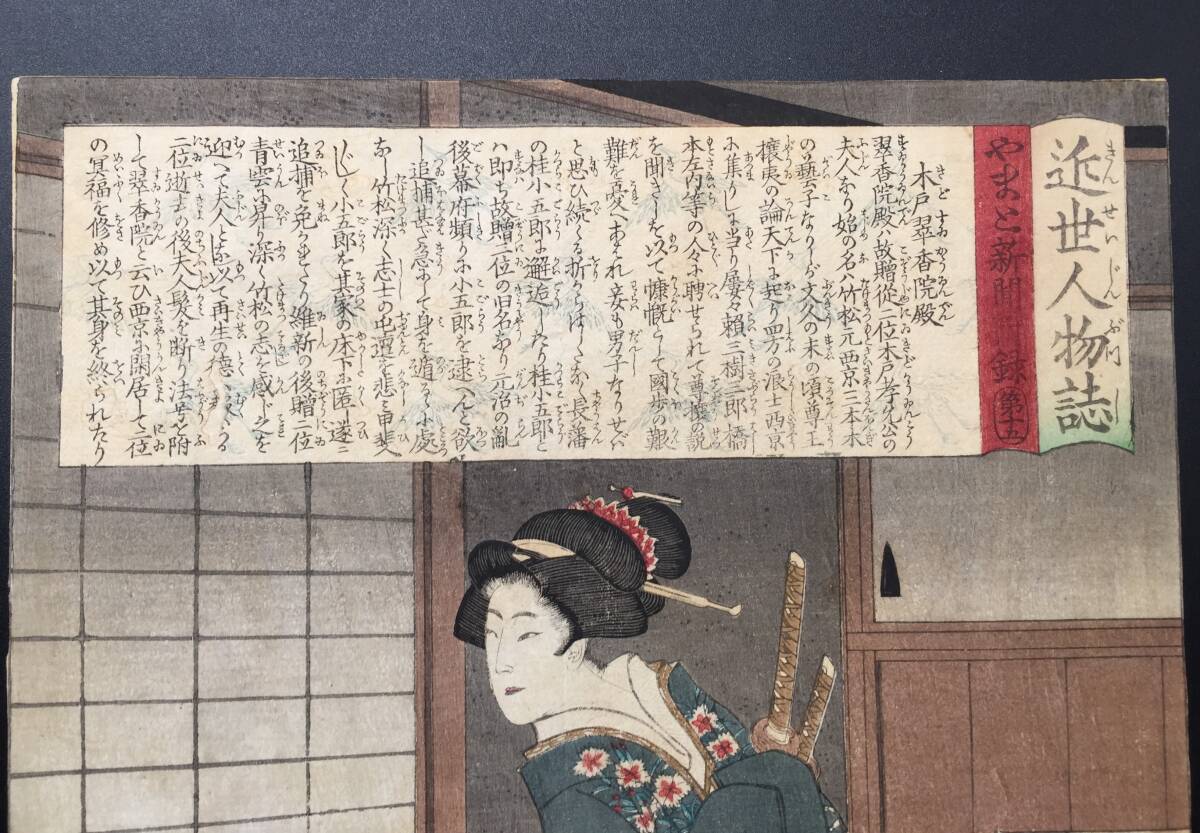 近世人物誌
やまと新聞附録 第十五
木戸翠香院殿
翠香院殿ハ故贈従二位木戸孝允公の
夫人なり始の名ハ竹松元西京三本木
の藝子なりしが文久の末の頃尊王
攘夷の論天下に起り四方の浪士西京
に焦りしに当り屡々頼三樹三郎橋
本左内等の人々に聘せられて尊攘の説
を聞きしを以て慷慨して國歩の艱
難を憂へあはれ妾も男子なりせバ
と思ひ続くる折からはしたなく長藩
の桂小五郎に邂逅したり桂小五郎と
ハ即ち故贈二位の旧名なり元治の亂
後幕府頻りに小五郎を逮へんと欲
し追捕甚だ急にして身を遁るゝに處
なし竹松深く志士の屯邅を悲み甲斐
〴〵しく小五郎を其家の床下に匿し遂に
追捕を免かれたり維新の後贈二位
青雲に昇り深く竹松の志を感じ之を
迎へて夫人とな以て再生の徳に
二位逝去の後夫人髪を断り法号を附
して翠香院と云ひ西京に閑居して二位
の冥福を修め以て其身を終られたり